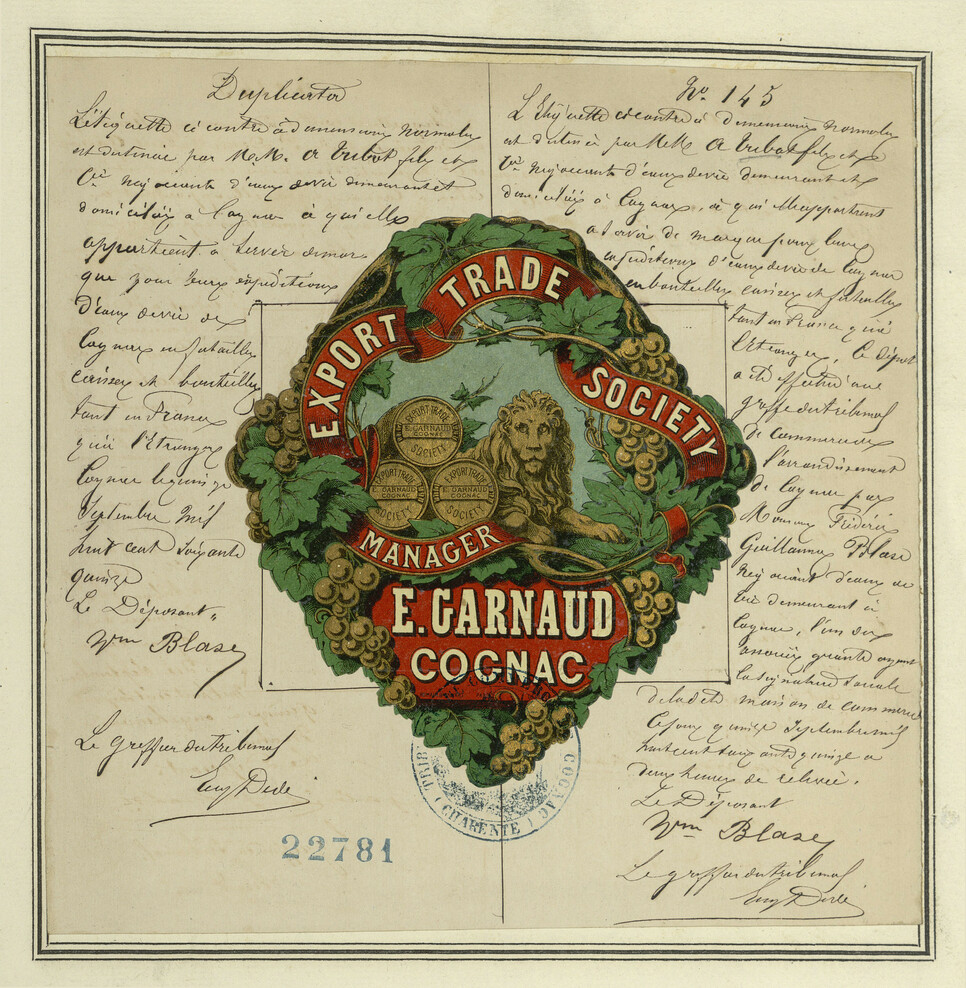 Duplicata
L'étiquette ci contre à dimensions normales
est destinée par M.M. A Tribot fils et
Cie négociants d'eaux de vie demeurant et
domiciliés à Cognac à qui elle
appartient à servir de mar
que pour leurs expéditions
d'eaux de vie de
Cognac en futailles
caisses et bouteilles
tant en France
qu'à l'Etranger
Cognac le quinze
Septembre mil
huit cent soixante
quinze
Le Déposant
Wm Blase
Le greffier du tribunal
No 145
L'Etiquette ci contre à dimensions normales
est destinée par MM A Tribot fils et
Cie négociants d'eaux de vie demeurant et
domiciliés à Cognac, à qui elle appartient
à servir de marque pour leurs
expéditions d'eaux de vie de Cognac
en bouteilles caisses et futailles
tant en France qu'à
l'Etranger, le dépôt
a été effectué au
greffe du tribunal
de Commerce de
l'arrondissement
de Cognac par
Monsieur Frédéric
Guillaume Blase
négociant d'eaux de
vie demeurant à
Cognac, l'un des
associés gérants ayant
la signature sociale
de la dite maison de commerce
Ce jour quinze Septembre mil
huit cent soixante quinze à
deux heures de relevée.
Le Déposant
Wm Blase
Le greffier du tribunal
EXPORT TRADE SOCIETY
EXPORT TRADE
E. GARNAUD
COGNAC
SOCIETY
EXPORT TRADE
E. GARNAUD
COGNAC
SOCIETY
EXPORT TRADE
E. GARNAUD
COGNAC
SOCIETY
MANAGER
E. GARNAUD
COGNAC
COGNAC
(CHARENTE)
22781